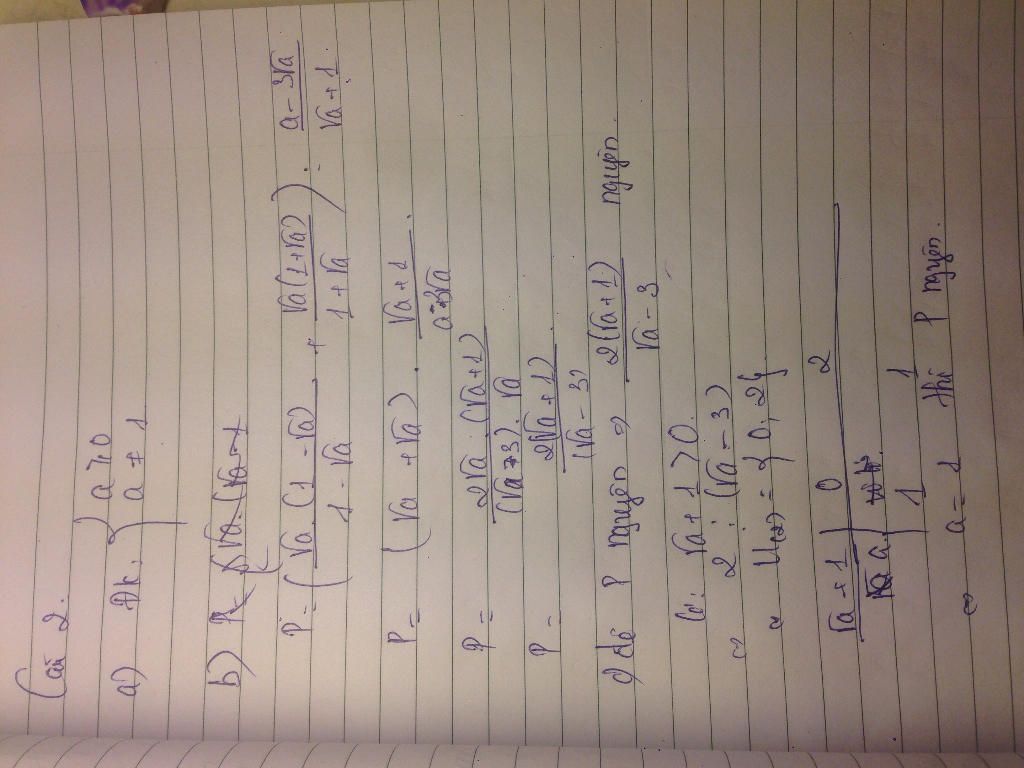 Câu 2.
a) Đk: { a ≥ 0
a ≠ 1
b)
P = ( √a.(1 - √a) / 1 - √a + √a(1+√a) / 1 + √a ) : a - 3√a / √a + 1
P = ( √a + √a ) . √a + 1 / a - 3√a
P = 2√a.(√a+1) / (√a-3).√a
P = 2(√a+1) / √a - 3
c) để P nguyên ⇒ 2(√a+1) / √a - 3 nguyên.
Có: √a + 1 > 0
⇔ 2 ⋮ (√a - 3)
U(2) = { 0, 2}
√a + 1 | 0 2
a | 1 1
⇔ a = 1 thì P nguyên.